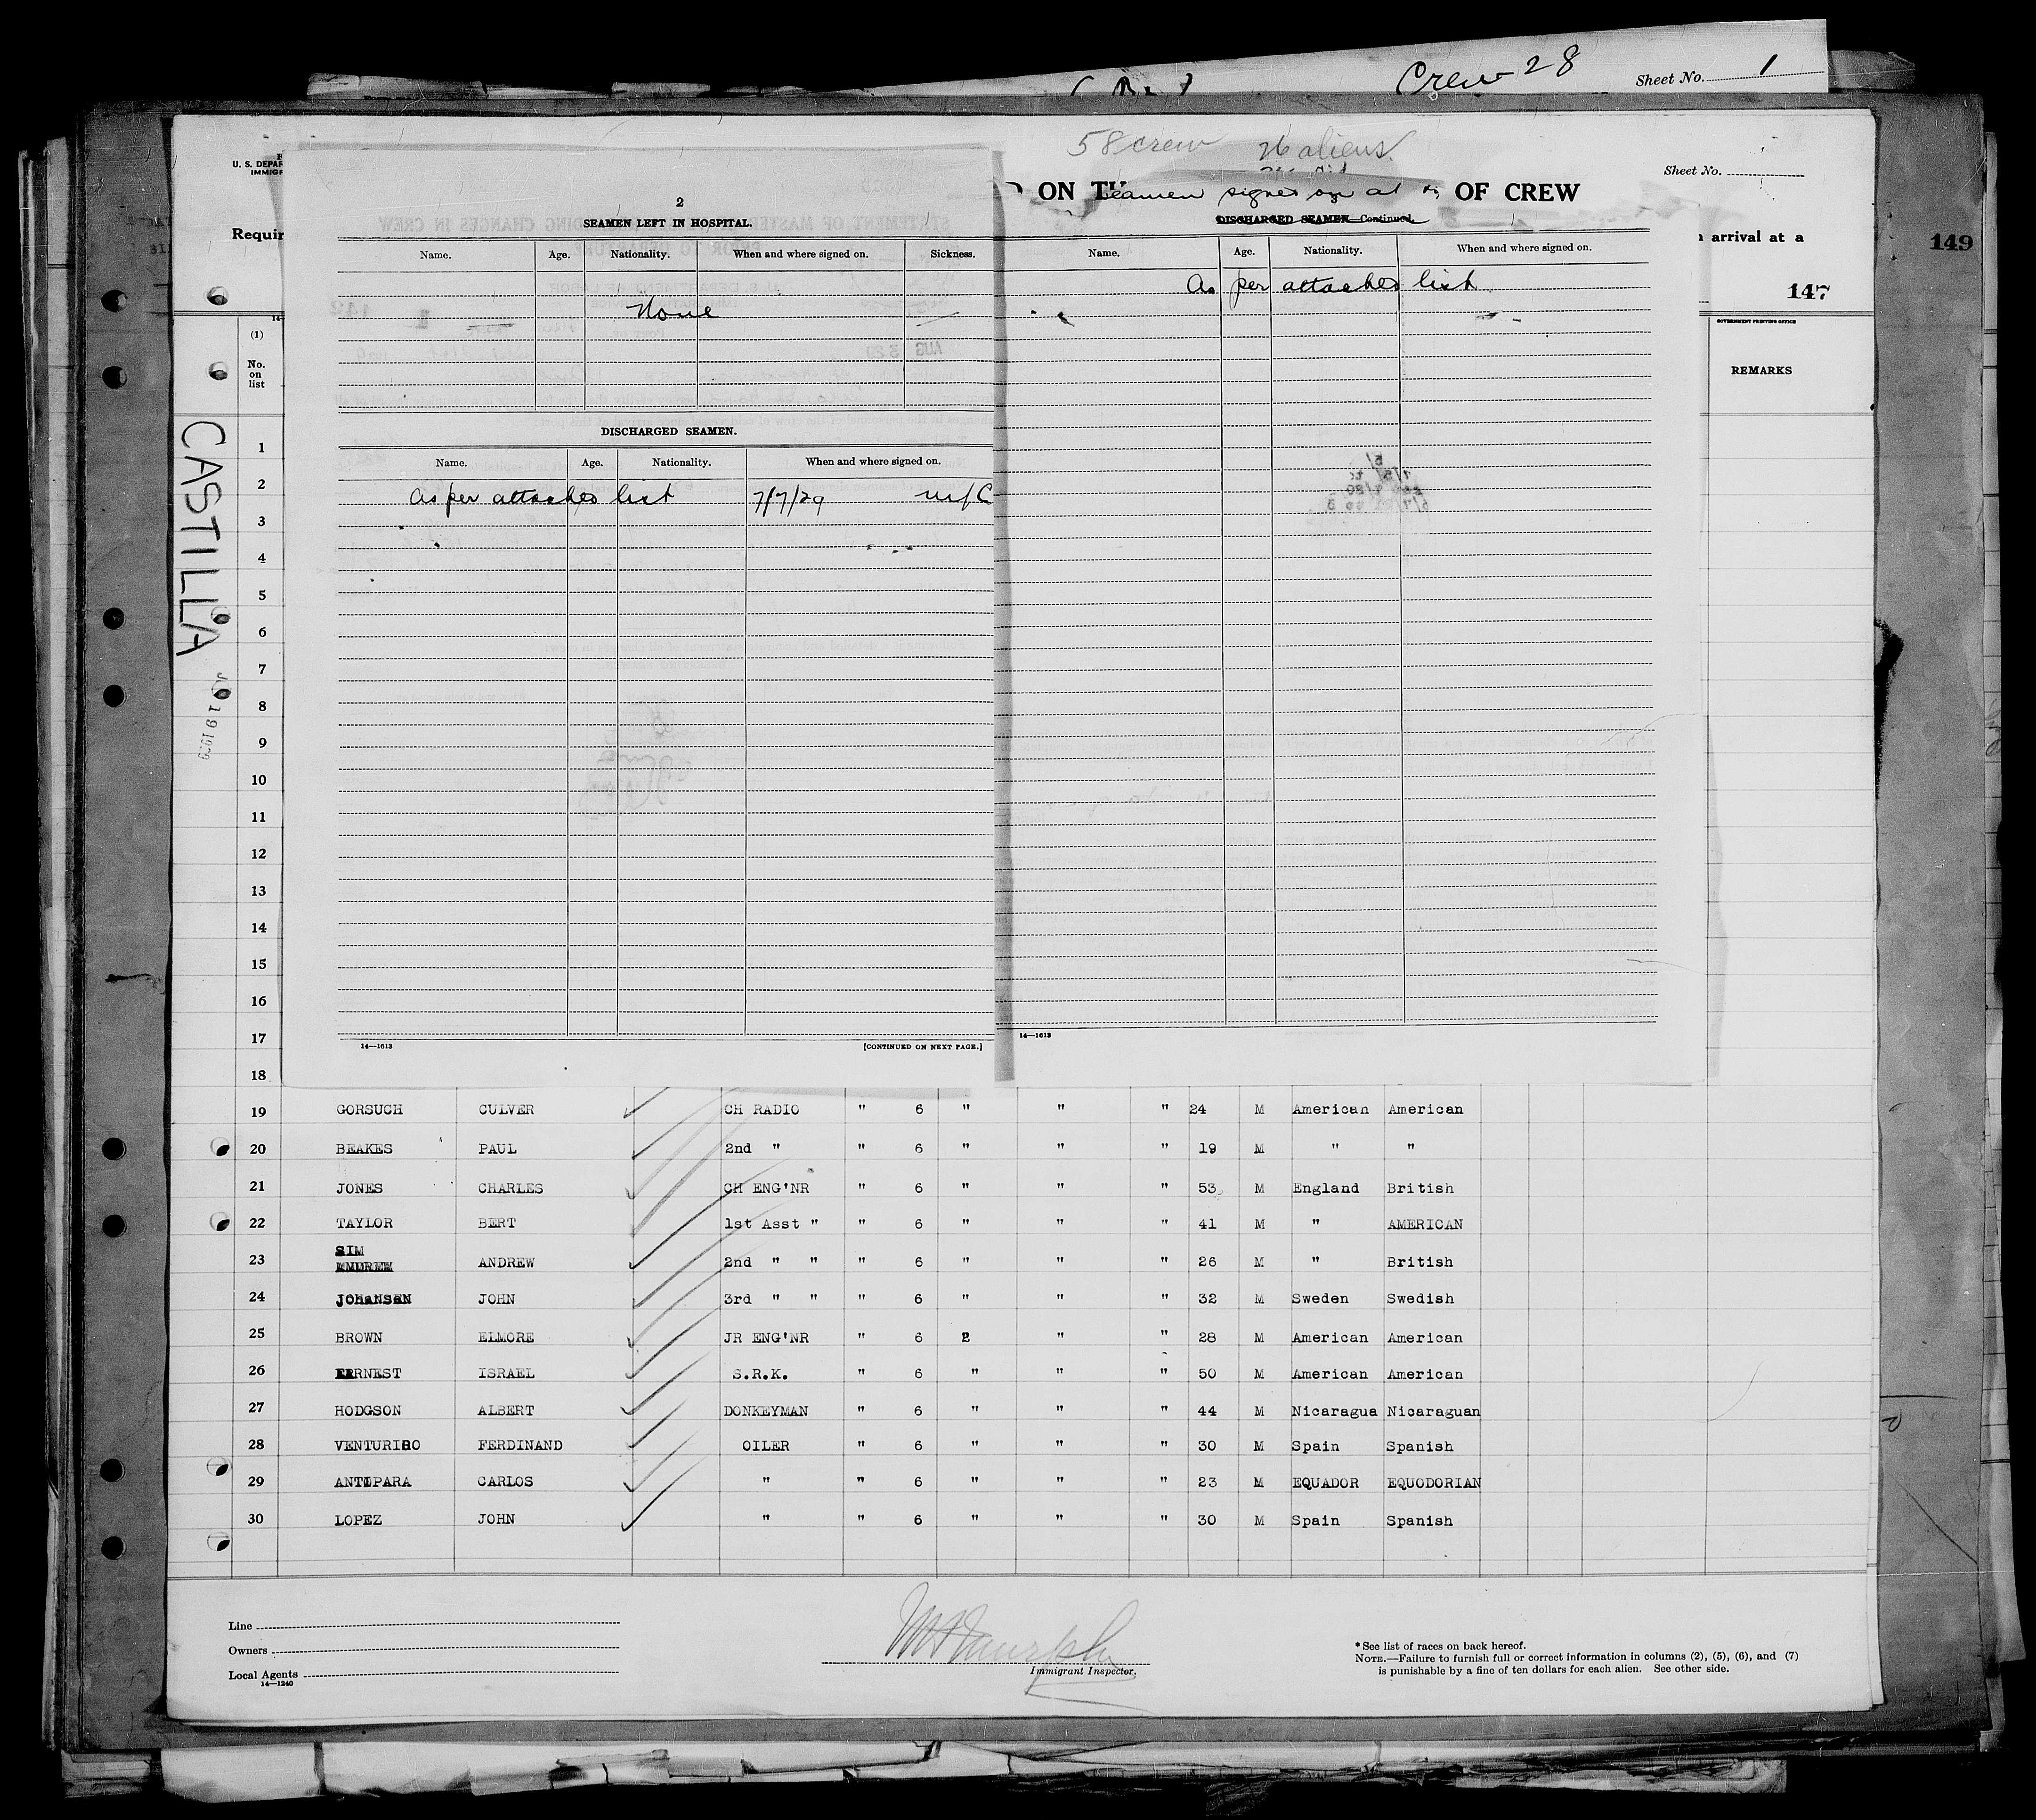 Crew 28 Sheet No. 1
58 crew aliens
U. S. DEPAR
IMMIGR
Sheet No.
ON Seamen signed on at OF CREW
2
SEAMEN LEFT IN HOSPITAL.
DISCHARGED SEAMEN—Continued.
Requir
n arrival at a
149
147
Name. Age. Nationality. When and where signed on. Sickness.
Name. Age. Nationality. When and where signed on.
As per attached list
None
(1)
No.
on
list
GOVERNMENT PRINTING OFFICE
REMARKS
DISCHARGED SEAMEN.
Name. Age. Nationality. When and where signed on.
As per attached list 7/7/29
CASTILLA
1
2
3
4
5
6
7
8
9
10
11
12
13
14
15
16
17
18
14—1613 [CONTINUED ON NEXT PAGE.]
14—1613
19 GORSUCH CULVER CH RADIO " 6 " " " 24 M American American
20 BEAKES PAUL 2nd " " 6 " " " 19 M " "
21 JONES CHARLES CH ENG'NR " 6 " " " 53 M England British
22 TAYLOR BERT 1st Asst " " 6 " " " 41 M " AMERICAN
23 SIM ANDREW 2nd " " " 6 " " " 26 M " British
24 JOHANSEN JOHN 3rd " " " 6 " " " 32 M Sweden Swedish
25 BROWN ELMORE JR ENG'NR " 6 2 " " 28 M American American
26 ERNEST ISRAEL S.R.K. " 6 " " " 50 M American American
27 HODGSON ALBERT DONKEYMAN " 6 " " " 44 M Nicaragua Nicaraguan
28 VENTURIRO FERDINAND OILER " 6 " " " 30 M Spain Spanish
29 ANTIPARA CARLOS " " 6 " " " 23 M EQUADOR EQUODORIAN
30 LOPEZ JOHN " " 6 " " " 30 M Spain Spanish
Line
Owners
Local Agents
14—1240
Immigrant Inspector.
* See list of races on back hereof.
NOTE.—Failure to furnish full or correct information in columns (2), (5), (6), and (7)
is punishable by a fine of ten dollars for each alien. See other side.